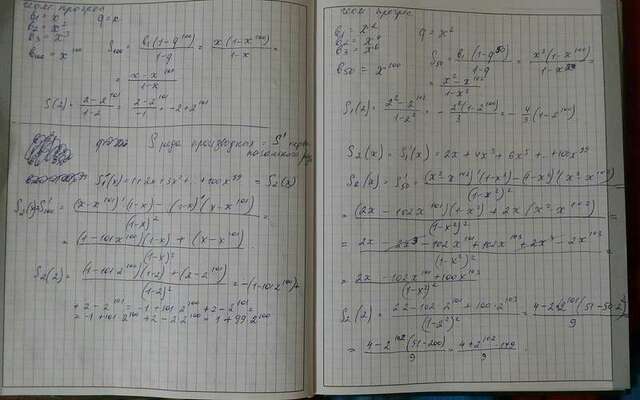 геом прогрес
b₁ = x
q = x
b₂ = x²
b₃ = x³
b₁₀₀ = x¹⁰⁰
S₁₀₀ = b₁(1-q¹⁰⁰)/1-q = x(1-x¹⁰⁰)/1-x =
= x-x¹⁰¹/1-x
S(2) = 2-2¹⁰¹/1-2 = 2-2¹⁰¹/-1 = -2+2¹⁰¹
S ряда производных = S' перво
начального ряда
S₁'(x) = 1+2x+3x²+...+100x⁹⁹ = S₂(x)
S₂(x) = S'₁₀₀ = (x-x¹⁰¹)'(1-x)-(1-x)'(x-x¹⁰¹)/(1-x)² =
= (1-101x¹⁰⁰)(1-x)+(x-x¹⁰¹)/(1-x)²
S₂(2) = (1-101·2¹⁰⁰)(1-2)+(2-2¹⁰¹)/(1-2)² = -(1-101·2¹⁰⁰)+
+2-2¹⁰¹ = -1+101·2¹⁰⁰+2-2¹⁰¹ =
= -1+101·2¹⁰⁰+2-2·2¹⁰⁰ = 1+99·2¹⁰⁰
геом прогрес
b₁ = x²
q = x²
b₂ = x⁴
b₃ = x⁶
b₅₀ = x¹⁰⁰
S₅₀ = b₁(1-q⁵⁰)/1-q = x²(1-x¹⁰⁰)/1-x² =
= x²-x¹⁰²/1-x²
S₁(2) = 2²-2¹⁰²/1-2² = -2²(1-2¹⁰⁰)/3 = -4/3(1-2¹⁰⁰)
S₂(x) = S₁'(x) = 2x+4x³+6x⁵+...+100x⁹⁹
S₂(x) = S'₅₀ = (x²-x¹⁰²)'(1-x²)-(1-x²)'(x²-x¹⁰²)/(1-x²)² =
= (2x-102x¹⁰¹)(1-x²)+2x(x²-x¹⁰²)/(1-x²)² =
= 2x-2x³-102x¹⁰¹+102x¹⁰³+2x³-2x¹⁰³/(1-x²)² =
= 2x-102x¹⁰¹+100x¹⁰³/(1-x²)²
S₂(2) = 2·2-102·2¹⁰¹+100·2¹⁰³/(1-2²)² = 4-2·2¹⁰¹(51-50·2²)/9
= 4-2¹⁰²(51-200)/9 = 4+2¹⁰²·149/9